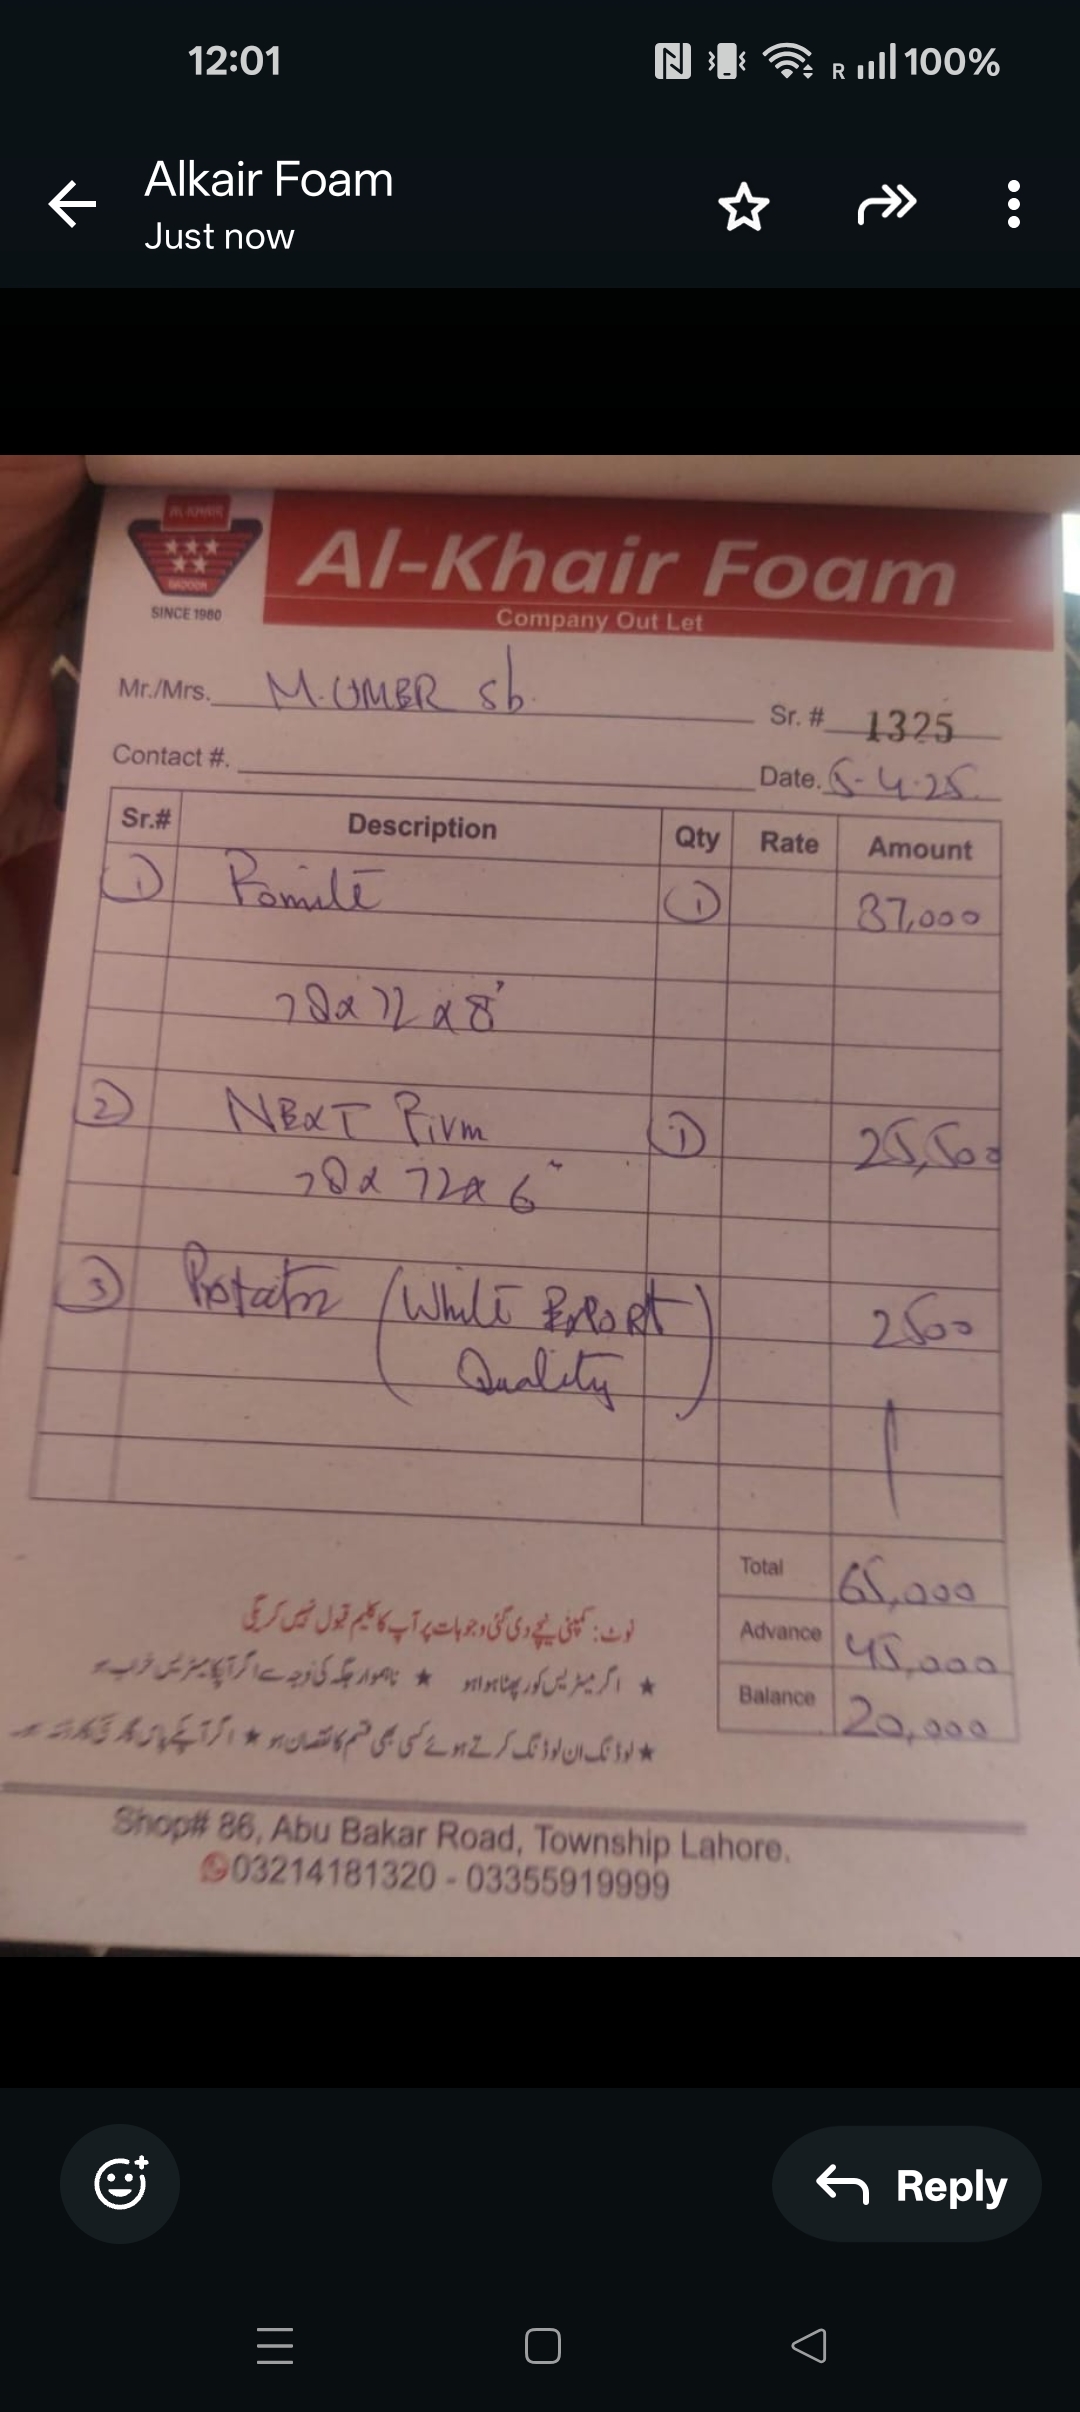 12:01
R 100%
Alkair Foam
Just now
AL-KHAIR
SINCE 1980
Al-Khair Foam
Company Out Let
Mr./Mrs. M. UMER sb.
Sr. # 1325
Contact #.
Date. 5-4-25
Sr.# Description Qty Rate Amount
1 1 37,000
78x72x8"
2 NExT 1 25,500
78x72x6"
3 (White Export 2500
Quality)
Total 65,000
Advance 45,000
Balance 20,000
نوٹ: کمپنی نیچے دی گئی وجوہات پر آپ کا کلیم قبول نہیں کریگی
★ اگر میٹریس کور پھٹا ہوا ہو ★ ناہموار جگہ کی وجہ سے اگر آپکا میٹریس خراب ہو
★ لوڈنگ ان لوڈنگ کرتے ہوئے کسی بھی قسم کا نقصان ہو ★ اگر آپکے پاس
Shop# 86, Abu Bakar Road, Township Lahore.
03214181320 - 03355919999
Reply